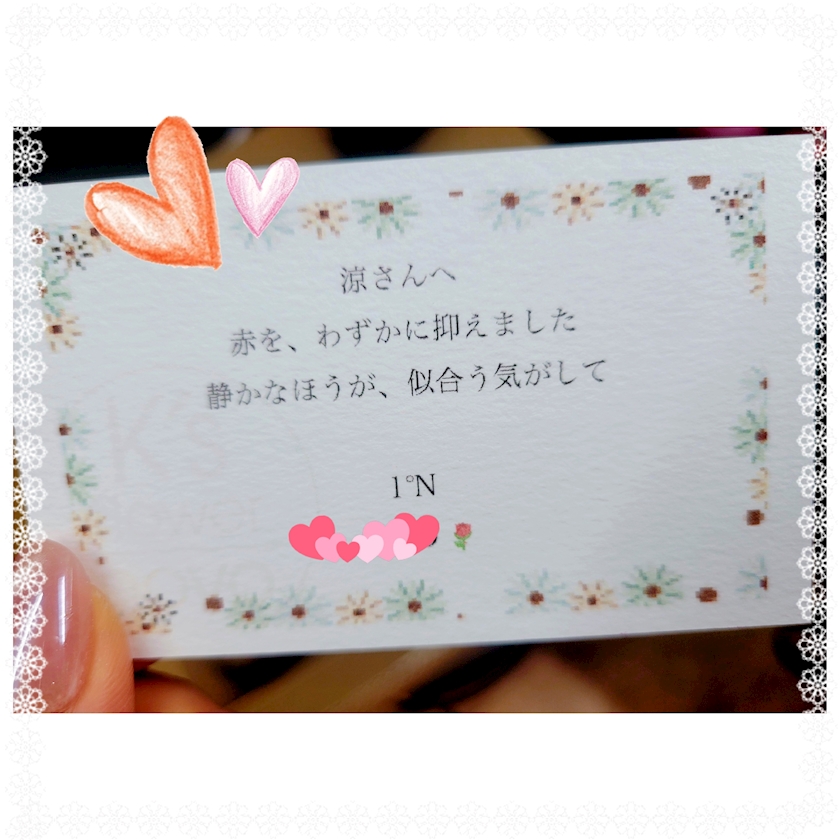 涼さんへ
赤を、わずかに抑えました
静かなほうが、似合う気がして
1°N